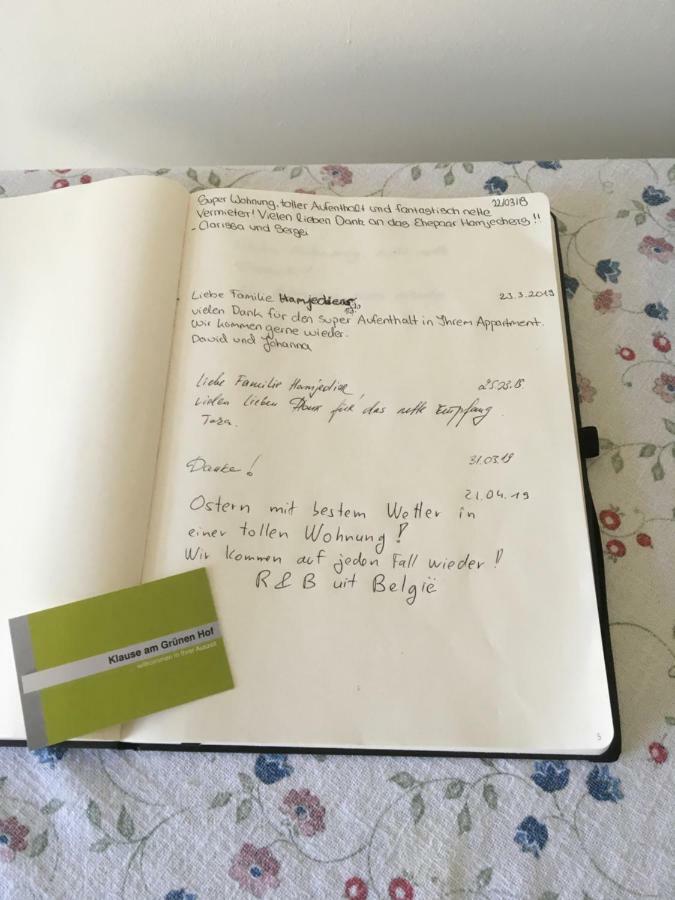 Super Wohnung, toller Aufenthalt und fantastisch nette 22/03/19
Vermieter! Vielen lieben Dank an das Ehepaar Hamjediers!!
- Clarissa und Sergej
Liebe Familie Hamjediers, 23.3.2019
vielen Dank für den super Aufenthalt in Ihrem Appartment.
Wir kommen gerne wieder.
David und Johanna
Liebe Familie
vielen lieben Dank für das nette Empfang.
Danke! 31.03.19
21.04.19
Ostern mit bestem Wetter in
einer tollen Wohnung!
Wir kommen auf jeden Fall wieder!
R & B uit België
Klause am Grünen Hof
willkommen in Ihrer Auszeit
5